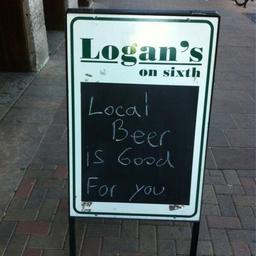 Logan's
on sixth
Local
Beer
is Good
For you